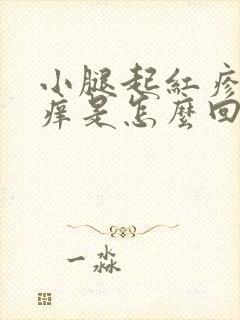 小腿起紅疹
痒是怎麼回
一淼